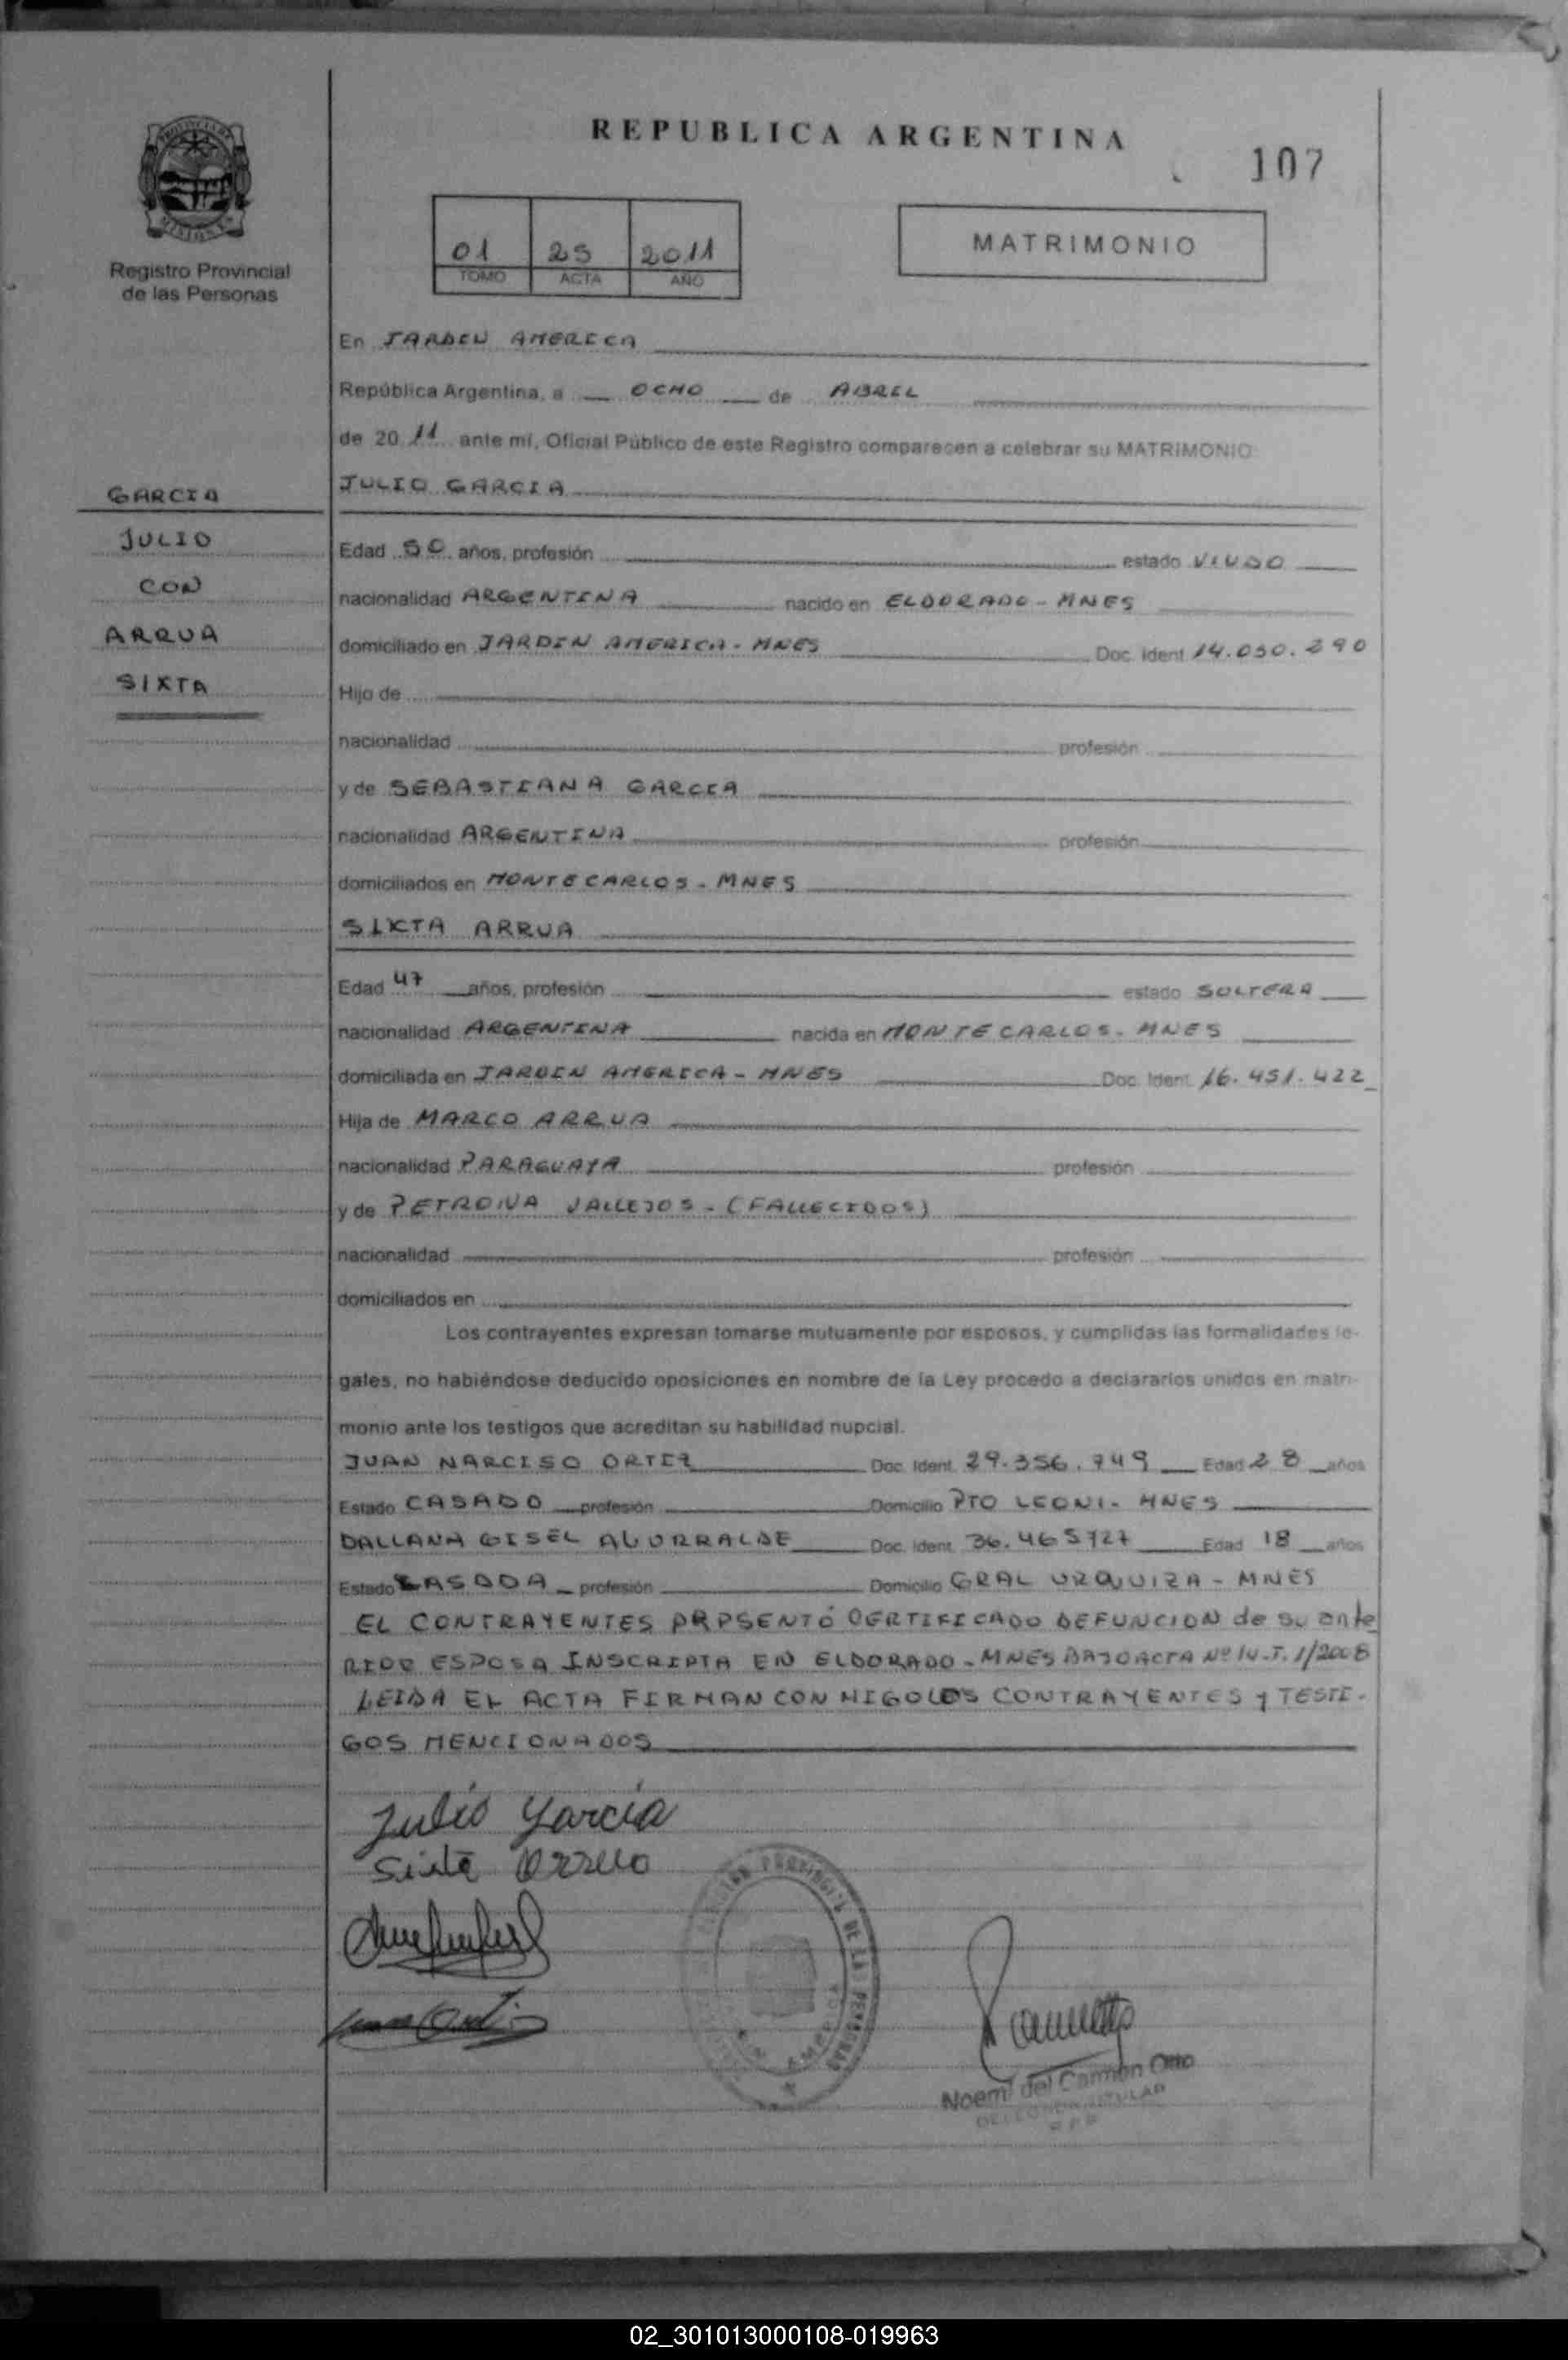 REPUBLICA ARGENTINA
107
Registro Provincial
de las Personas
01 25 2011
TOMO ACTA AÑO
MATRIMONIO
En JARDIN AMERICA
República Argentina, a OCHO de ABRIL
de 20 11 ante mí, Oficial Público de este Registro comparecen a celebrar su MATRIMONIO
GARCIA
JULIO
CON
ARRUA
SIXTA
JULIO GARCIA
Edad 50 años, profesión estado VIUDO
nacionalidad ARGENTINA nacido en ELDORADO - MNES
domiciliado en JARDIN AMERICA - MNES Doc. Ident. 14.050.290
Hijo de
nacionalidad profesión
y de SEBASTIANA GARCIA
nacionalidad ARGENTINA profesión
domiciliados en MONTECARLOS - MNES
SIXTA ARRUA
Edad 47 años, profesión estado SOLTERA
nacionalidad ARGENTINA nacida en MONTECARLOS - MNES
domiciliada en JARDIN AMERICA - MNES Doc. Ident. 16.451.422
Hija de MARCO ARRUA
nacionalidad PARAGUAYA profesión
y de PETRONA VALLEJOS - (FALLECIDOS)
nacionalidad profesión
domiciliados en
Los contrayentes expresan tomarse mutuamente por esposos, y cumplidas las formalidades le-
gales, no habiéndose deducido oposiciones en nombre de la Ley procedo a declararlos unidos en matri-
monio ante los testigos que acreditan su habilidad nupcial.
JUAN NARCISO ORTIZ Doc. Ident. 29.356.749 Edad 28 años
Estado CASADO profesión Domicilio PTO LEONI - MNES
DALLANA GISEL ALURRALDE Doc. Ident. 36.465727 Edad 18 años
Estado CASODA profesión Domicilio GRAL URQUIZA - MNES
EL CONTRAYENTES PRPSENTÓ CERTIFICADO DEFUNCION de su ante
RIOR ESPOSA INSCRIPTA EN ELDORADO - MNES BAJO ACTA Nº T. 1/2008
LEIDA EL ACTA FIRMAN CON MIGO LOS CONTRAYENTES y TESTI-
GOS MENCIONADOS
Julio Garcia
Sixta Arrua
Noemi del Carmen Otto
02_301013000108-019963